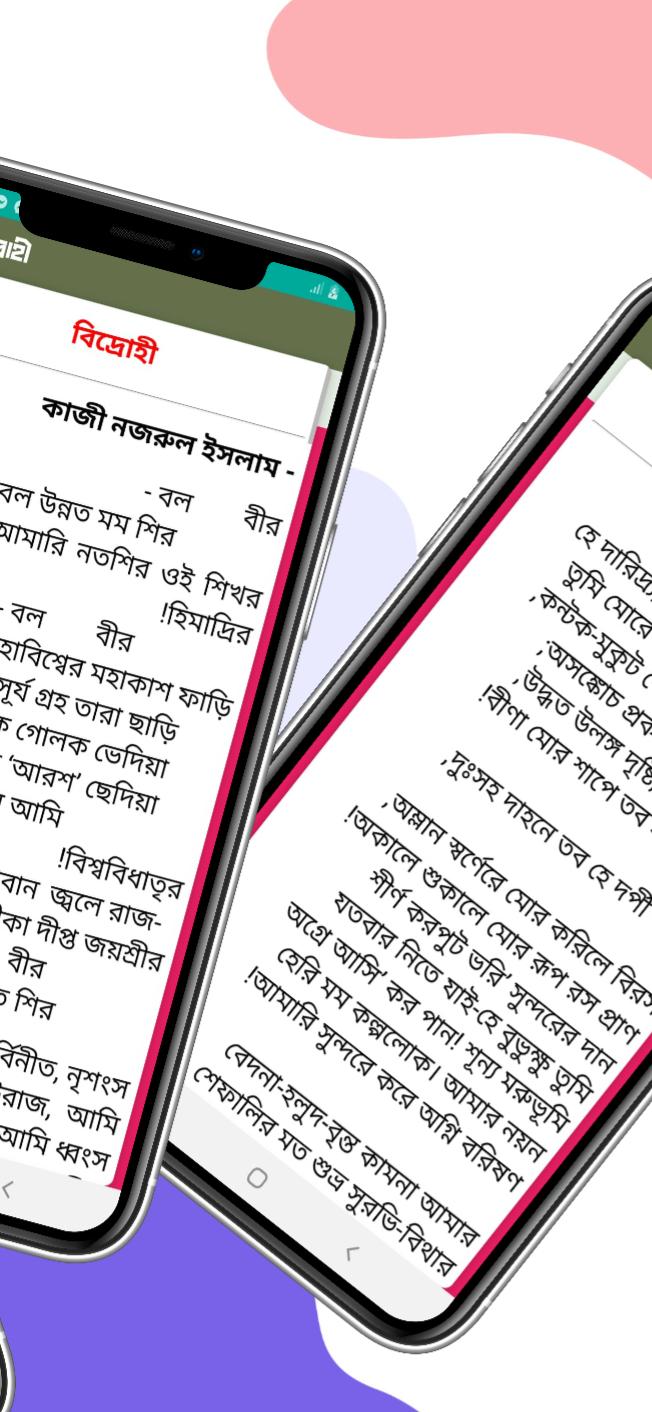 বিদ্রোহী
কাজী নজরুল ইসলাম -
- বল বীর
বল উন্নত মম শির
আমারি নতশির ওই শিখর
!হিমাদ্রির
- বল বীর
মহাকাশ ফাড়ি
সূর্য গ্রহ তারা ছাড়ি
গোলক ভেদিয়া
‘আরশ’ ছেদিয়া
আমি
!বিশ্ববিধাতৃর
জ্বলে রাজ-
দীপ্ত জয়শ্রীর
বীর
শির
নৃশংস
আমি
আমি ধ্বংস
হে দারিদ্র্য
তুমি মোরে
,কন্টক-মুকুট
,অসঙ্কোচ
,উদ্ধত উলঙ্গ দৃষ্টি
!বীণা মোর শাপে তব
,দুঃসহ দাহনে তব হে দর্পী
,অম্লান স্বর্ণেরে মোর করিলে বিরস
!অকালে শুকালে মোর রূপ রস প্রাণ
শীর্ণ করপুট ভরি’ সুন্দরের দান
যতবার নিতে যাই-হে বুভুক্ষু তুমি
অগ্রে আসি’ কর পান! শূন্য মরুভূমি
হেরি মম কল্পলোক। আমার নয়ন
!আমারি সুন্দরে করে অগ্নি বরিষণ
বেদনা-হলুদ-বৃন্ত কামনা আমার
শেফালির মত শুভ্র সুরভি-বিথার